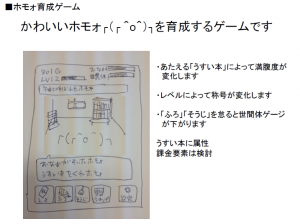 ■ホモォ育成ゲーム
かわいいホモォ┌(┌ ^o^)┐を育成するゲームです
・あたえる「うすい本」によって満腹度が
変化します
・レベルによって称号が変化します
・「ふろ」「そうじ」を怠ると世間体ゲージ
が下がります
うすい本に属性
課金要素は検討
LV12
┌(┌ ^o^)┐
おなかがすいたホモォ
うすい本をくれホモォ